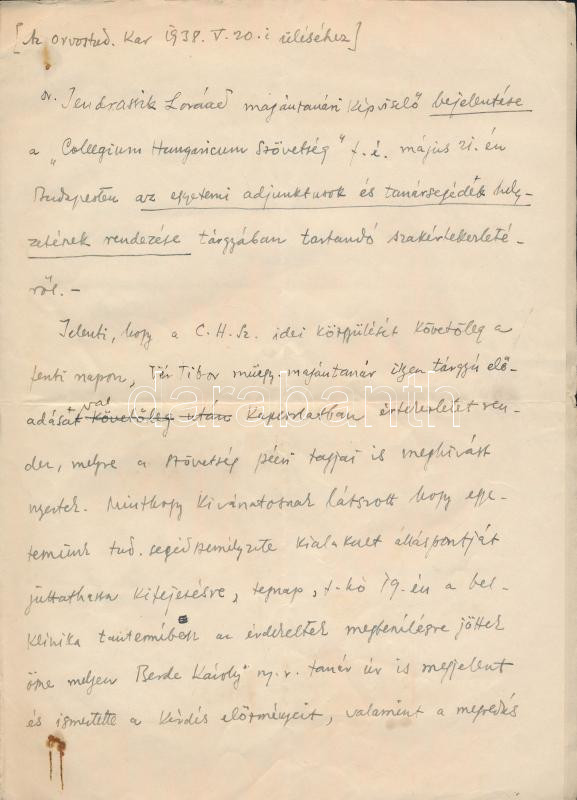 [Az orvostud. Kar 1938. V. 20.-i üléséhez]
Dr. Jendrassik Loránd magántanári képviselő bejelentése
a „Collegium Hungaricum Szövetség" f. é. május 21.-én
Budapesten az egyetemi adjunktusok és tanársegédek hely-
zetének rendezése tárgyában tartandó szakértekezleté-
ről. -
Jelenti, hogy a C. H. Sz. idei közgyűlését követőleg a
fenti napon, Tibor műegy. magántanár ilyen tárgyú elő-
adásával követőleg után kapcsolatban értekezletet ren-
dez, melyre a Szövetség pécsi tagjai is meghívást
nyertek. Minthogy kívánatosnak látszott hogy egye-
temünk tud. segédszemélyzete kialakult álláspontját
juttathassa kifejezésre, tegnap, f. hó 19.-én a bel-
klinika tantermében az érdekeltek megbeszélésre jöttek
össze melyen Berde Károly ny. r. tanár úr is megjelent
és ismertette a kérdés előzményeit, valamint a
darabanth